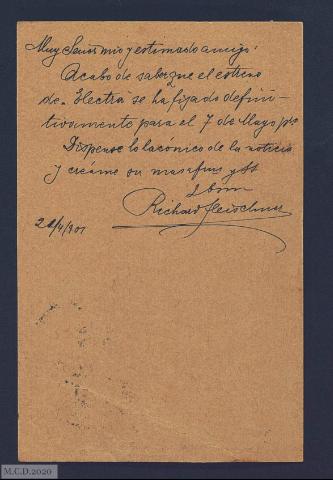 Muy Señor mio y estimado amigo:
Acabo de saber que el estreno
de "Electra" se ha fijado defini-
tivamente para el 7 de Mayo
Dispense lo lacónico de la noticia
y creáme su
Richard Fleischner
/4/901
M.C.D.2020